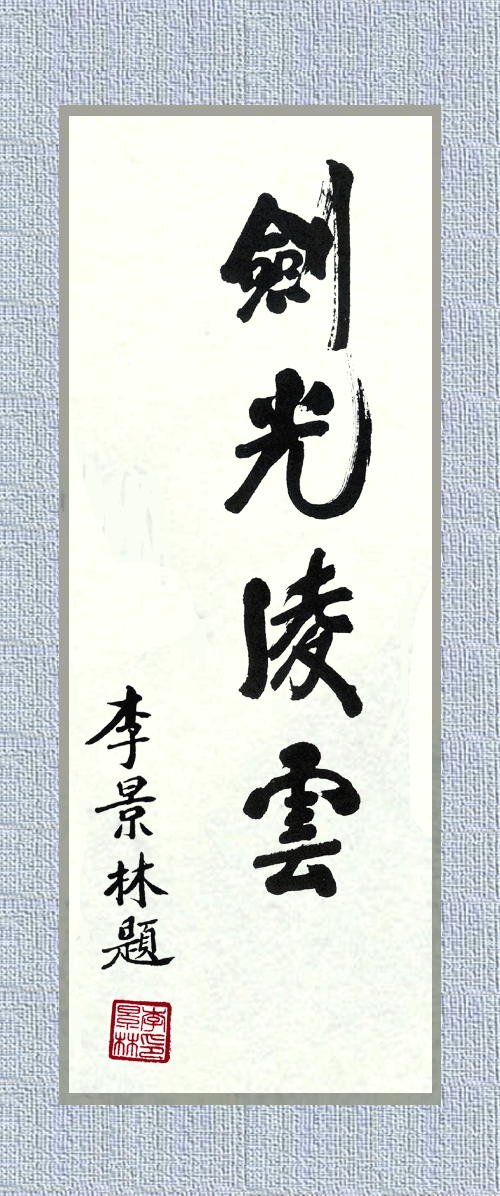 劍光凌雲
李景林題
李印景林